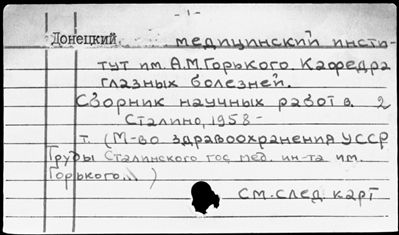 - 1 -
Донецкий медицинский инсти-
тут им. А.М.Горького. Кафедра
глазных болезней.
Сборник научных работ в. 2
Сталино, 1958 -
т. (М-во здравоохранения УССР
Труды Сталинского гос. мед. ин-та им.
Горького... )
см. след. карт